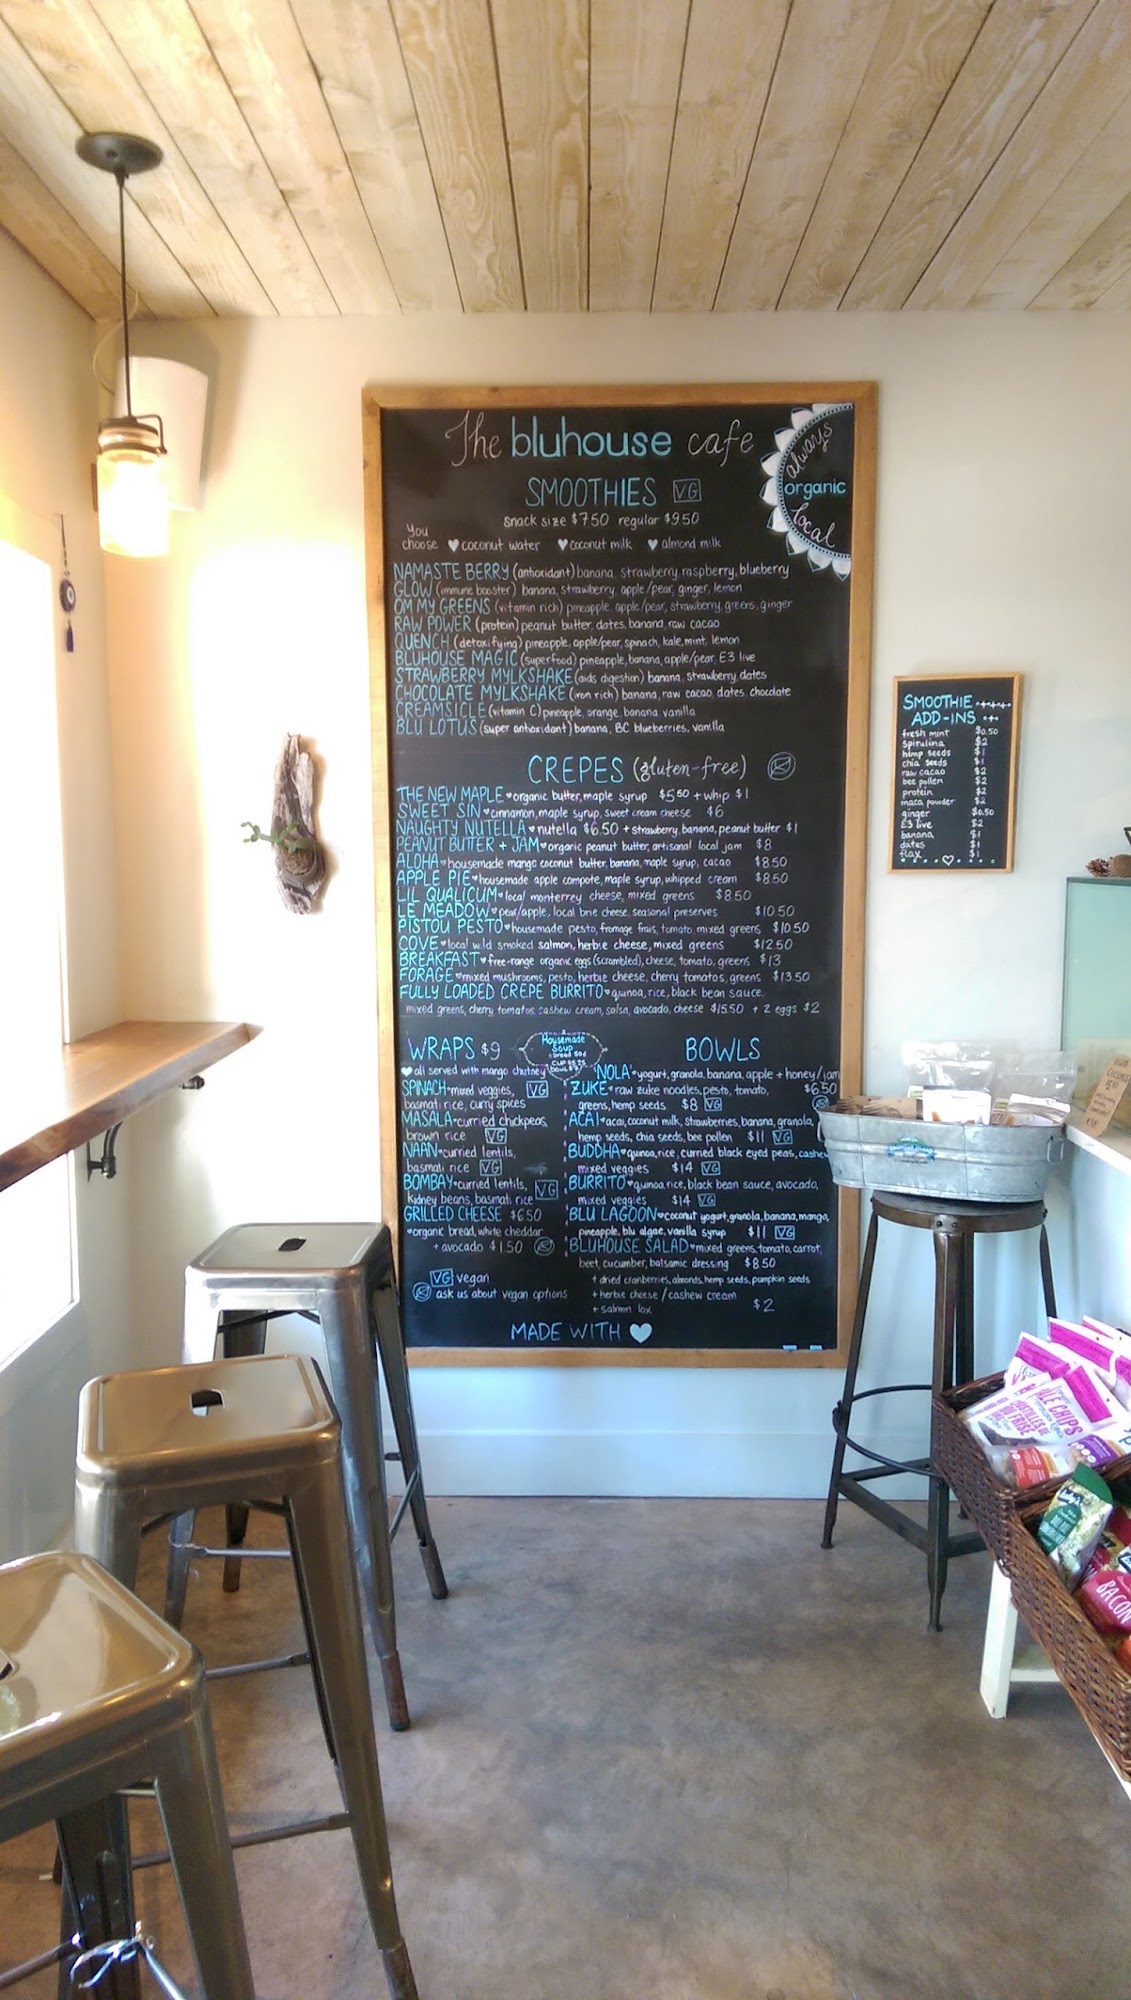 The bluhouse cafe
always
organic
local
SMOOTHIES VG
snack size $7.50 regular $9.50
You choose ♥ coconut water ♥ coconut milk ♥ almond milk
NAMASTE BERRY (antioxidant) banana, strawberry, raspberry, blueberry
GLOW (immune booster) banana, strawberry, apple/pear, ginger, lemon
OM MY GREENS (vitamin rich) pineapple, apple/pear, strawberry, greens, ginger
RAW POWER (protein) peanut butter, dates, banana, raw cacao
QUENCH (detoxifying) pineapple, apple/pear, spinach, kale, mint, lemon
BLUHOUSE MAGIC (superfood) pineapple, banana, apple/pear, E3 live
STRAWBERRY MYLKSHAKE (aids digestion) banana, strawberry, dates
CHOCOLATE MYLKSHAKE (iron rich) banana, raw cacao, dates, chocolate
CREAMSICLE (vitamin C) pineapple, orange, banana vanilla
BLU LOTUS (super antioxidant) banana, BC blueberries, vanilla
CREPES (gluten-free)
THE NEW MAPLE ♥ organic butter, maple syrup $5.50 + whip $1
SWEET SIN ♥ cinnamon, maple syrup, sweet cream cheese $6
NAUGHTY NUTELLA ♥ nutella $6.50 + strawberry, banana, peanut butter $1
PEANUT BUTTER + JAM ♥ organic peanut butter, artisanal local jam $8
ALOHA ♥ housemade mango coconut butter, banana, maple syrup, cacao $8.50
APPLE PIE ♥ housemade apple compote, maple syrup, whipped cream $8.50
LIL QUALICUM ♥ local monterrey cheese, mixed greens $8.50
LE MEADOW ♥ pear/apple, local brie cheese, seasonal preserves $10.50
PISTOU PESTO ♥ housemade pesto, fromage frais, tomato, mixed greens $10.50
COVE ♥ local wild smoked salmon, herbie cheese, mixed greens $12.50
BREAKFAST ♥ free-range organic eggs (scrambled), cheese, tomato, greens $13
FORAGE ♥ mixed mushrooms, pesto, herbie cheese, cherry tomatos, greens $13.50
FULLY LOADED CREPE BURRITO ♥ quinoa, rice, black bean sauce,
mixed greens, cherry tomatos, cashew cream, salsa, avocado, cheese $15.50 + 2 eggs $2
WRAPS $9
♥ all served with mango chutney
SPINACH ♥ mixed veggies, VG
basmati rice, curry spices
MASALA ♥ curried chickpeas,
brown rice VG
NAAN ♥ curried lentils,
basmati rice VG
BOMBAY ♥ curried lentils,
kidney beans, basmati rice VG
GRILLED CHEESE $6.50
♥ organic bread, white cheddar
+ avocado $1.50
VG vegan
ask us about vegan options
Housemade
Soup
+ bread
CUP
bowl
BOWLS
NOLA ♥ yogurt, granola, banana, apple + honey/jam
$6.50
ZUKE ♥ raw zuke noodles, pesto, tomato,
greens, hemp seeds $8 VG
ACAI ♥ acai, coconut milk, strawberries, banana, granola,
hemp seeds, chia seeds, bee pollen $11 VG
BUDDHA ♥ quinoa, rice, curried black eyed peas, cashew
mixed veggies $14 VG
BURRITO ♥ quinoa, rice, black bean sauce, avocado,
mixed veggies $14 VG
BLU LAGOON ♥ coconut yogurt, granola, banana, mango,
pineapple, blu algae, vanilla syrup $11 VG
BLUHOUSE SALAD ♥ mixed greens, tomato, carrot,
beet, cucumber, balsamic dressing $8.50
+ dried cranberries, almonds, hemp seeds, pumpkin seeds
+ herbie cheese / cashew cream
+ salmon lox $2
MADE WITH ♥
SMOOTHIE
ADD-INS
fresh mint $0.50
spirulina $2
hemp seeds $1
chia seeds $1
raw cacao $2
bee pollen $2
protein $2
maca powder $2
ginger $0.50
E3 live $2
banana $1
dates $1
flax $1
KALE CHIPS
BACON